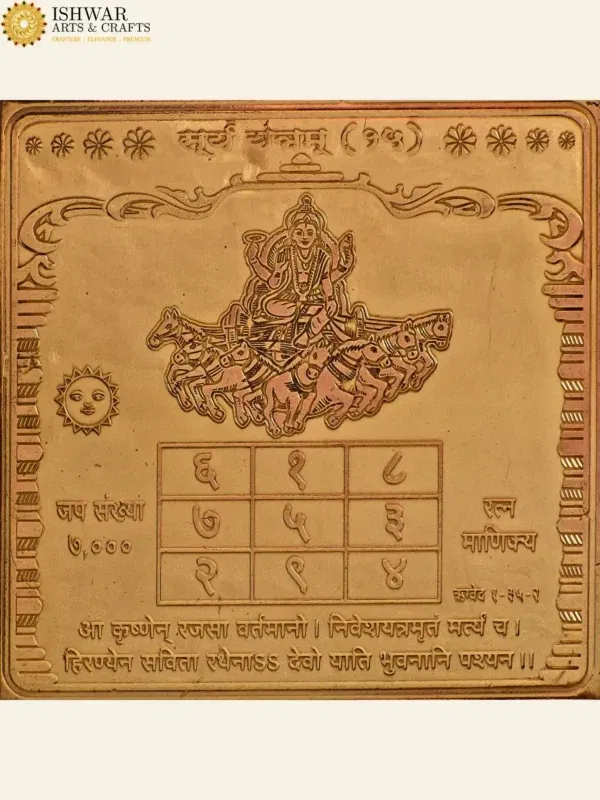 ISHWAR
ARTS & CRAFTS
CRAFTURE . ELEGANCE . PREMIUM.
सूर्य यंत्रम् (१५)
६ १ ८
७ ५ ३
२ ९ ४
जप संख्या
७,०००
रत्न
माणिक्य
ऋग्वेद १-३५-२
आ कृष्णेन् रजसा वर्तमानो। निवेशयन्नमृतं मर्त्यं च।
हिरण्येन सविता रथेनाऽऽ देवो याति भुवनानि पश्यन।।